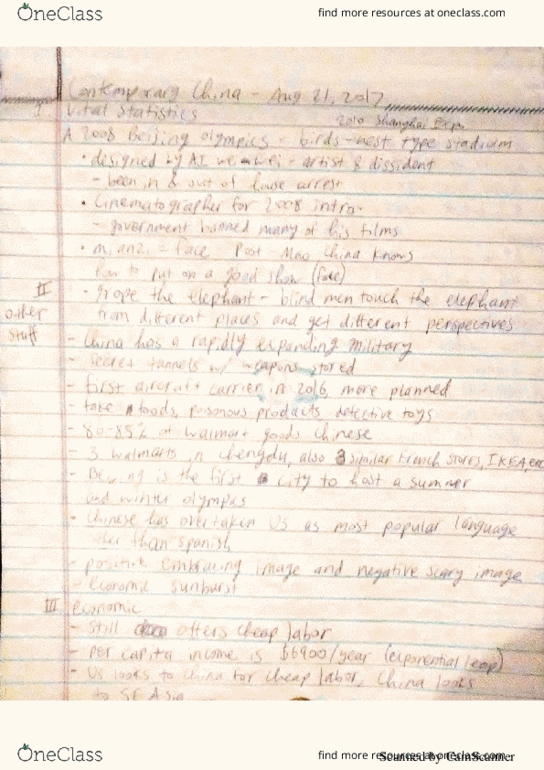 OneClass
find more resources at oneclass.com
Contemporary China - Aug 21, 2017
I Vital Statistics
2010 Shanghai Expo
A 2008 Beijing olympics - birds-nest type stadium
• designed by AI weiwei - artist & dissident
- been in & out of house arrest
• Cinematographer for 2008 intro
- government banned many of his films
• mianzi = face Post-Mao China knows
how to put on a good show (face)
II
other
stuff
- grope the elephant - blind men touch the elephant
from different places and get different perspectives
- China has a rapidly expanding military
- secret tunnels w/ weapons stored
- first aircraft carrier in 2016, more planned
- fake foods, poisonous products, defective toys
- 80-85% of walmart goods Chinese
- 3 walmarts in Chengdu, also 3 similar French stores, IKEA, etc
- Beijing is the first city to host a summer
and winter olympics
- Chinese has overtaken US as most popular language
other than spanish
- positive embracing image and negative scary image
- economic sunburst
III economic
- still offers cheap labor
- per capita income is $6900/year (exponential leap)
- US looks to China for cheap labor, China looks
to SE Asia
OneClass
find more resources at oneclass.com
Scanned by CamScanner